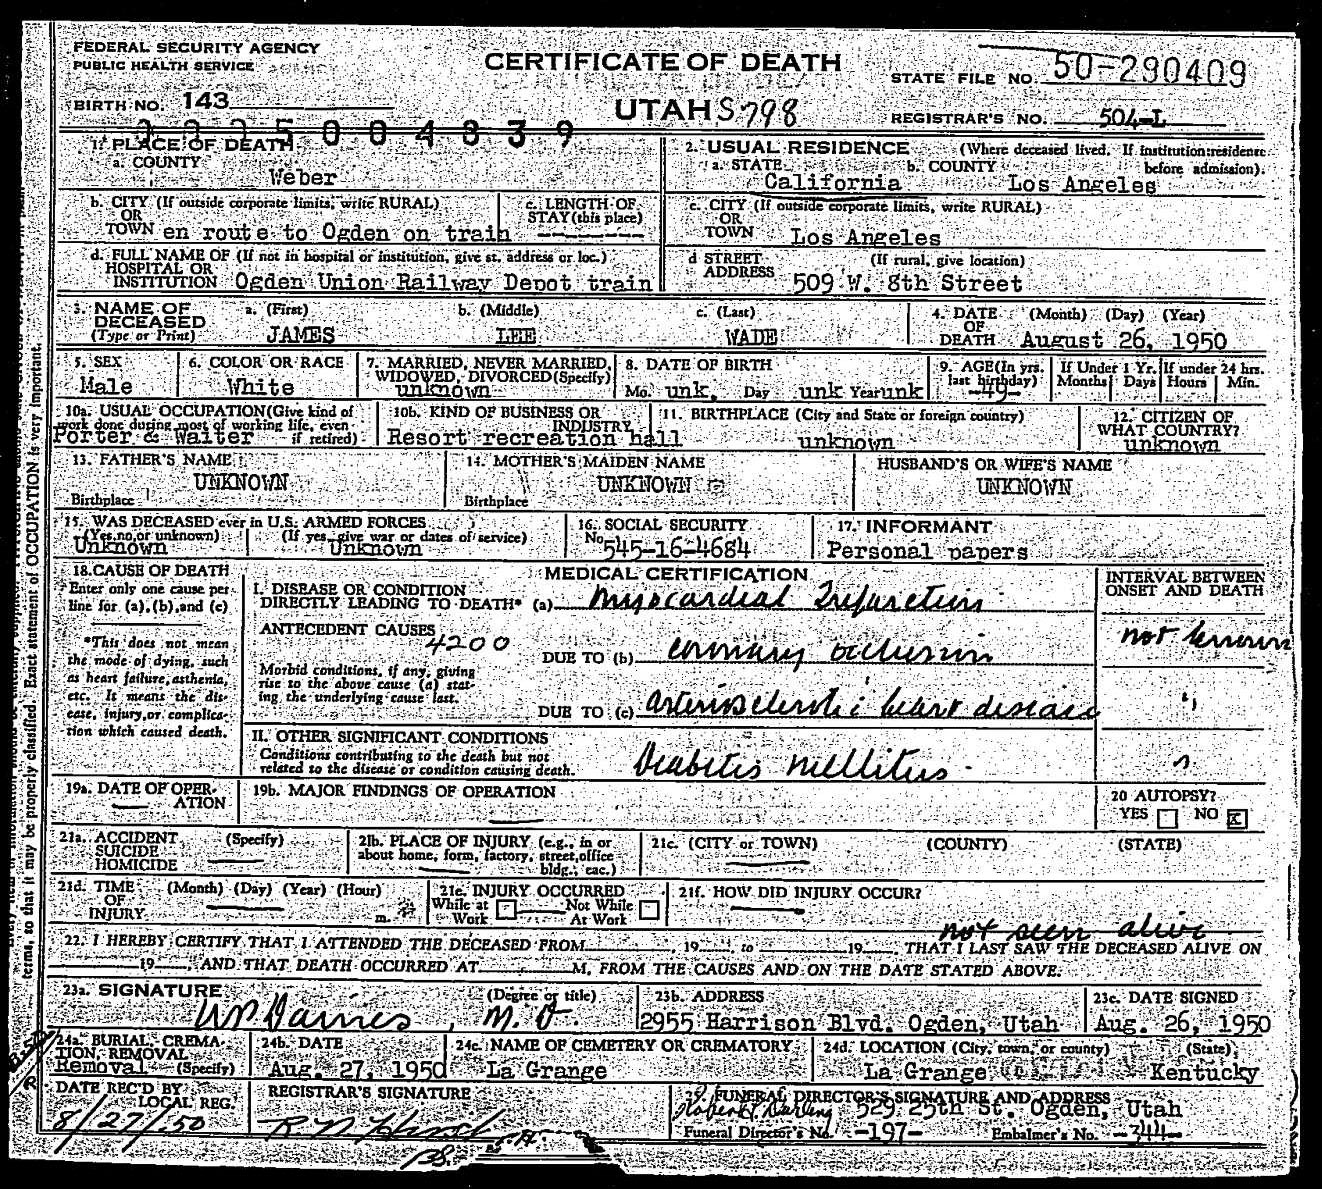 FEDERAL SECURITY AGENCY
PUBLIC HEALTH SERVICE
CERTIFICATE OF DEATH
STATE FILE NO. 50-290409
BIRTH NO. 143
UTAH S798
REGISTRAR'S NO. 504-L
2 2 2 5 0 0 4 8 3 9
1. PLACE OF DEATH
a. COUNTY
Weber
2. USUAL RESIDENCE (Where deceased lived. If institution: residence before admission).
a. STATE b. COUNTY
California Los Angeles
b. CITY (If outside corporate limits, write RURAL)
OR
TOWN en route to Ogden on train
c. LENGTH OF
STAY (this place)
c. CITY (If outside corporate limits, write RURAL)
OR
TOWN Los Angeles
d. FULL NAME OF (If not in hospital or institution, give st. address or loc.)
HOSPITAL OR
INSTITUTION Ogden Union Railway Depot train
d STREET (If rural, give location)
ADDRESS 509 W. 8th Street
3. NAME OF DECEASED (Type or Print)
a. (First) b. (Middle) c. (Last)
JAMES LEE WADE
4. DATE OF DEATH (Month) (Day) (Year)
August 26, 1950
5. SEX
Male
6. COLOR OR RACE
White
7. MARRIED, NEVER MARRIED,
WIDOWED, DIVORCED (Specify)
unknown
8. DATE OF BIRTH
Mo. unk. Day unk Year unk
9. AGE (In yrs. last birthday)
-49-
If Under 1 Yr. If under 24 hrs.
Months Days Hours Min.
10a. USUAL OCCUPATION (Give kind of
work done during most of working life, even
if retired)
Porter & Waiter
10b. KIND OF BUSINESS OR
INDUSTRY
Resort recreation hall
11. BIRTHPLACE (City and State or foreign country)
unknown
12. CITIZEN OF
WHAT COUNTRY?
unknown
13. FATHER'S NAME
UNKNOWN
Birthplace
14. MOTHER'S MAIDEN NAME
UNKNOWN
Birthplace
HUSBAND'S OR WIFE'S NAME
UNKNOWN
15. WAS DECEASED ever in U.S. ARMED FORCES
(Yes, no, or unknown) (If yes, give war or dates of service)
Unknown Unknown
16. SOCIAL SECURITY
No. 545-16-4684
17. INFORMANT
Personal papers
18. CAUSE OF DEATH
Enter only one cause per
line for (a), (b), and (c)
*This does not mean
the mode of dying, such
as heart failure, asthenia,
etc. It means the dis-
ease, injury, or complica-
tion which caused death.
MEDICAL CERTIFICATION
I. DISEASE OR CONDITION
DIRECTLY LEADING TO DEATH* (a) Myocardial Infarction
ANTECEDENT CAUSES
4200
DUE TO (b) coronary occlusion
Morbid conditions, if any, giving
rise to the above cause (a) stat-
ing the underlying cause last.
DUE TO (c) arteriosclerotic heart disease
II. OTHER SIGNIFICANT CONDITIONS
Conditions contributing to the death but not
related to the disease or condition causing death.
Diabetis mellitus
INTERVAL BETWEEN
ONSET AND DEATH
not known
"
"
19a. DATE OF OPER-
ATION
19b. MAJOR FINDINGS OF OPERATION
20 AUTOPSY?
YES NO X
21a. ACCIDENT (Specify)
SUICIDE
HOMICIDE
21b. PLACE OF INJURY (e.g., in or
about home, form, factory, street, office
bldg., eac.)
21c. (CITY or TOWN) (COUNTY) (STATE)
21d. TIME (Month) (Day) (Year) (Hour)
OF
INJURY m.
21e. INJURY OCCURRED
While at Not While
Work At Work
21f. HOW DID INJURY OCCUR?
not seen alive
22. I HEREBY CERTIFY THAT I ATTENDED THE DECEASED FROM 19 to 19 THAT I LAST SAW THE DECEASED ALIVE ON
19 , AND THAT DEATH OCCURRED AT M, FROM THE CAUSES AND ON THE DATE STATED ABOVE.
23a. SIGNATURE (Degree or title)
M.D.
23b. ADDRESS
2955 Harrison Blvd. Ogden, Utah
23c. DATE SIGNED
Aug. 26, 1950
24a. BURIAL, CREMA-
TION, REMOVAL
(Specify)
Removal
24b. DATE
Aug. 27, 1950
24c. NAME OF CEMETERY OR CREMATORY
La Grange
24d. LOCATION (City, town, or county) (State)
La Grange Kentucky
DATE REC'D BY
LOCAL REG.
8/27/50
REGISTRAR'S SIGNATURE
25. FUNERAL DIRECTOR'S SIGNATURE AND ADDRESS
529 25th St. Ogden, Utah
Funeral Director's No. -197- Embalmer's No. -344-
terms, so that it may be properly classified. Exact statement of OCCUPATION is very important.